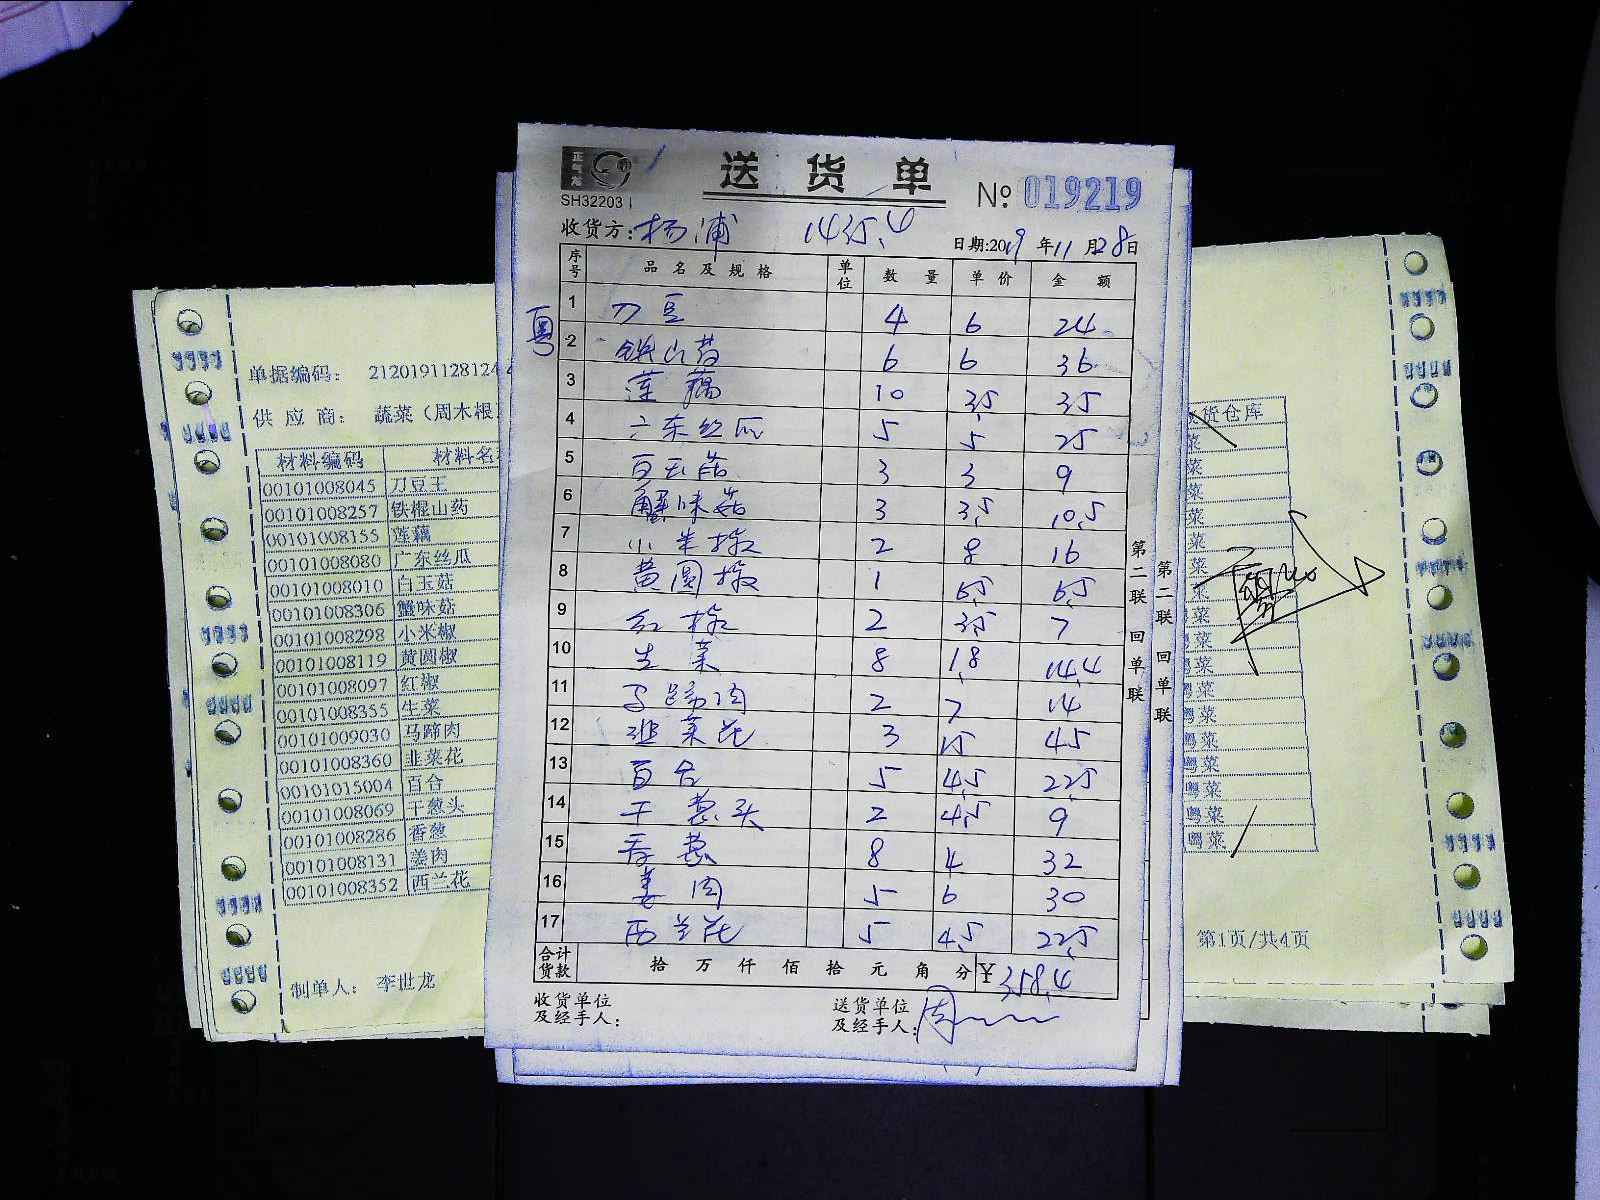 正气龙
SH32203
送货单
№ 019219
收货方: 杨浦 1435.4
日期:2019年11月28日
序号 品名及规格 单位 数量 单价 金额
粤
1 刀豆 4 6 24
2 铁山药 6 6 36
3 莲藕 10 3.5 35
4 广东丝瓜 5 5 25
5 白玉菇 3 3 9
6 蟹味菇 3 3.5 10.5
7 小米椒 2 8 16
8 黄圆椒 1 6.5 6.5
9 红椒 2 3.5 7
10 生菜 8 1.8 14.4
11 马蹄肉 2 7 14
12 韭菜花 3 15 45
13 百合 5 4.5 22.5
14 干葱头 2 4.5 9
15 香葱 8 4 32
16 姜肉 5 6 30
17 西兰花 5 4.5 22.5
合计货款 拾万仟佰拾元角分 ¥358.4
收货单位及经手人:
送货单位及经手人: 周
第二联 回单联
第二联 回单联
单据编码: 2120191128124
供应商: 蔬菜（周木根
材料编码 材料名
00101008045 刀豆王
00101008257 铁棍山药
00101008155 莲藕
00101008080 广东丝瓜
00101008010 白玉菇
00101008306 蟹味菇
00101008298 小米椒
00101008119 黄圆椒
00101008097 红椒
00101008355 生菜
00101009030 马蹄肉
00101008360 韭菜花
00101015004 百合
00101008069 干葱头
00101008286 香葱
00101008131 姜肉
00101008352 西兰花
制单人: 李世龙
货仓库
菜
菜
菜
菜
菜
菜
菜
菜
粤菜
粤菜
粤菜
粤菜
粤菜
粤菜
粤菜
粤菜
粤菜
第1页/共4页